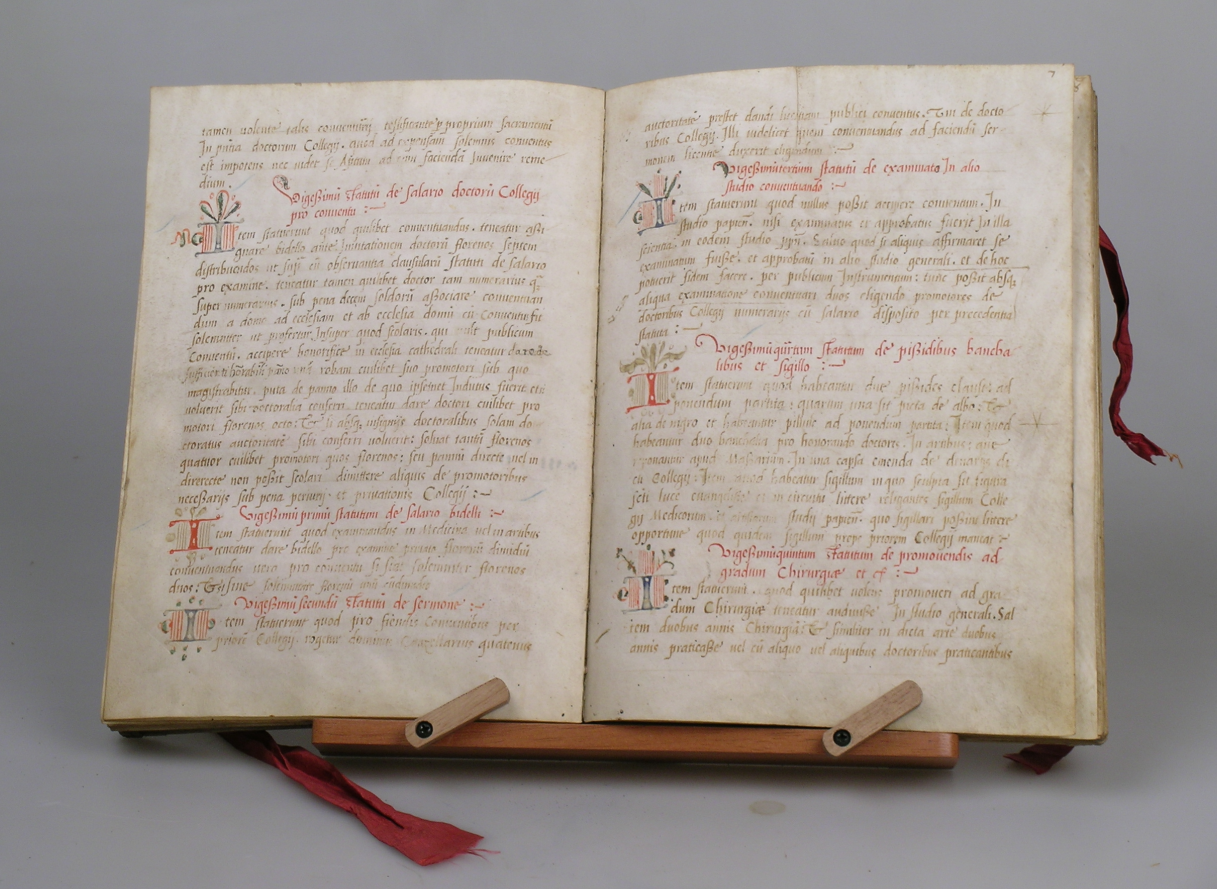 tamen volente talis conventum testificante proprium sacramentum
In pñia doctorum Collegij. quod ad expensam solemnis conventus
est impotens nec videt
dium.
Vigeßimũ statutũ de salario doctorũ Collegij
pro conventu :~
Item statuerunt quod quilibet conventuandus. teneatur aßi
gnare bidello ante Invitationem doctorũ florenos septem
distribuendos ut supᵃ cũ observantia clausularũ statuti de salario
pro examine. teneatur tamen quilibet doctor tam numerarius q̃
super numerarius. sub pena decem soldorũ aßociare conventuan
dum a domo ad ecclesiam et ab ecclesia domũ cũ Conventus fit
solemniter ut profertur. Insuper quod scolaris. qui vult publicum
Conventũ. accipere honorifice in ecclesia cathedrali teneatur dare de
robam cuilibet suo promotori sub quo
magistrabitur. puta de panno illo de quo ipsemet Indutus fuerit et si
voluerit sibi doctoralia conferri. teneatur dare doctori cuilibet pro
motori florenos octo: Et si absq̃ insignijs doctoralibus solam do
ctoratus auctoritatẽ sibi conferri voluerit: solvat tantũ florenos
quatuor cuilibet promotori quos florenos: seu panni directe vel in
directe non poßit scolari dimittere aliquis de promotoribus
neceßarijs sub pena periurij. et privationis Collegij :~
Vigeßimũ primũ statutum de salario bidelli :~
Item statuerunt quod examinandus in Medicina vel in artibus
teneatur dare bidello pro examine privato florenũ dimidiũ
conventuandus vero pro conventu si fiat solemniter florenos
duos. Et si sine solemnitate florenũ unũ
Vigeßimũ secundũ statutũ de sermone :~
Item statuerunt quod pro fiendis Conventibus per
priorẽ Collegij rogetur dominus Cancellarius quatenus
7
auctoritatẽ prestet dandi licentiam publici conventus. Uni de docto
ribus Collegij. Illi videlicet quem conventuandus ad faciendũ ser
monem licentie duxerit eligendum :~
Vigeßimũ tertium statutũ de examinato In alio
studio conventuando :~
Item statuerunt quod nullus poßit accipere conventum. In
studio papien̄. nisi examinatus et approbatus fuerit In illa
scientia in eodem studio pp̃n. Salvo quod si aliquis affirmaret se
examinatum fuiße. et approbatũ in alio studio generali. et de hoc
poterit fidem facere. per publicum Instrumentum: tunc poßit absq̃
aliqua examinatione conventari duos eligendo promotores de
doctoribus Collegij numerarijs cũ salario disposito per precedentia
statuta :~
Vigeßimũ qũrtum statutum de pißidibus bancha
libus et sigillo :~
Item statuerunt quod habeantur due pißides clause. ad
ponendum partita: quarum una sit picta de albo: Et
alia de nigro et habeantur pillule ad ponendum partita: Item quod
habeantur duo banchalia pro honorando doctores. In artibus: que
reponantur apud Maßarium. In una capsa emenda de denarijs di
cti Collegij. Item quod habeatur sigillum in quo sculpta sit figura
scti luce evangeliste et in circuitu littere religantes sigillum Colle
gij Medicorum et artistarum studij papien̄. quo sigillari poßint littere
opportune quod quidem sigillum prope priorem Collegij maneat :~
Vigeßimũ quintum statutum de promovendis ad
gradum Chirurgiæ et cͭ :~
Item statuerunt. quod quilibet volens promoveri ad gra
dum Chirurgiæ teneatur audiviße In studio generali. Sal
tem duobus annis Chirurgiã: Et similiter in dicta arte duobus
annis praticaße vel cũ aliquo vel aliquibus doctoribus praticantibus